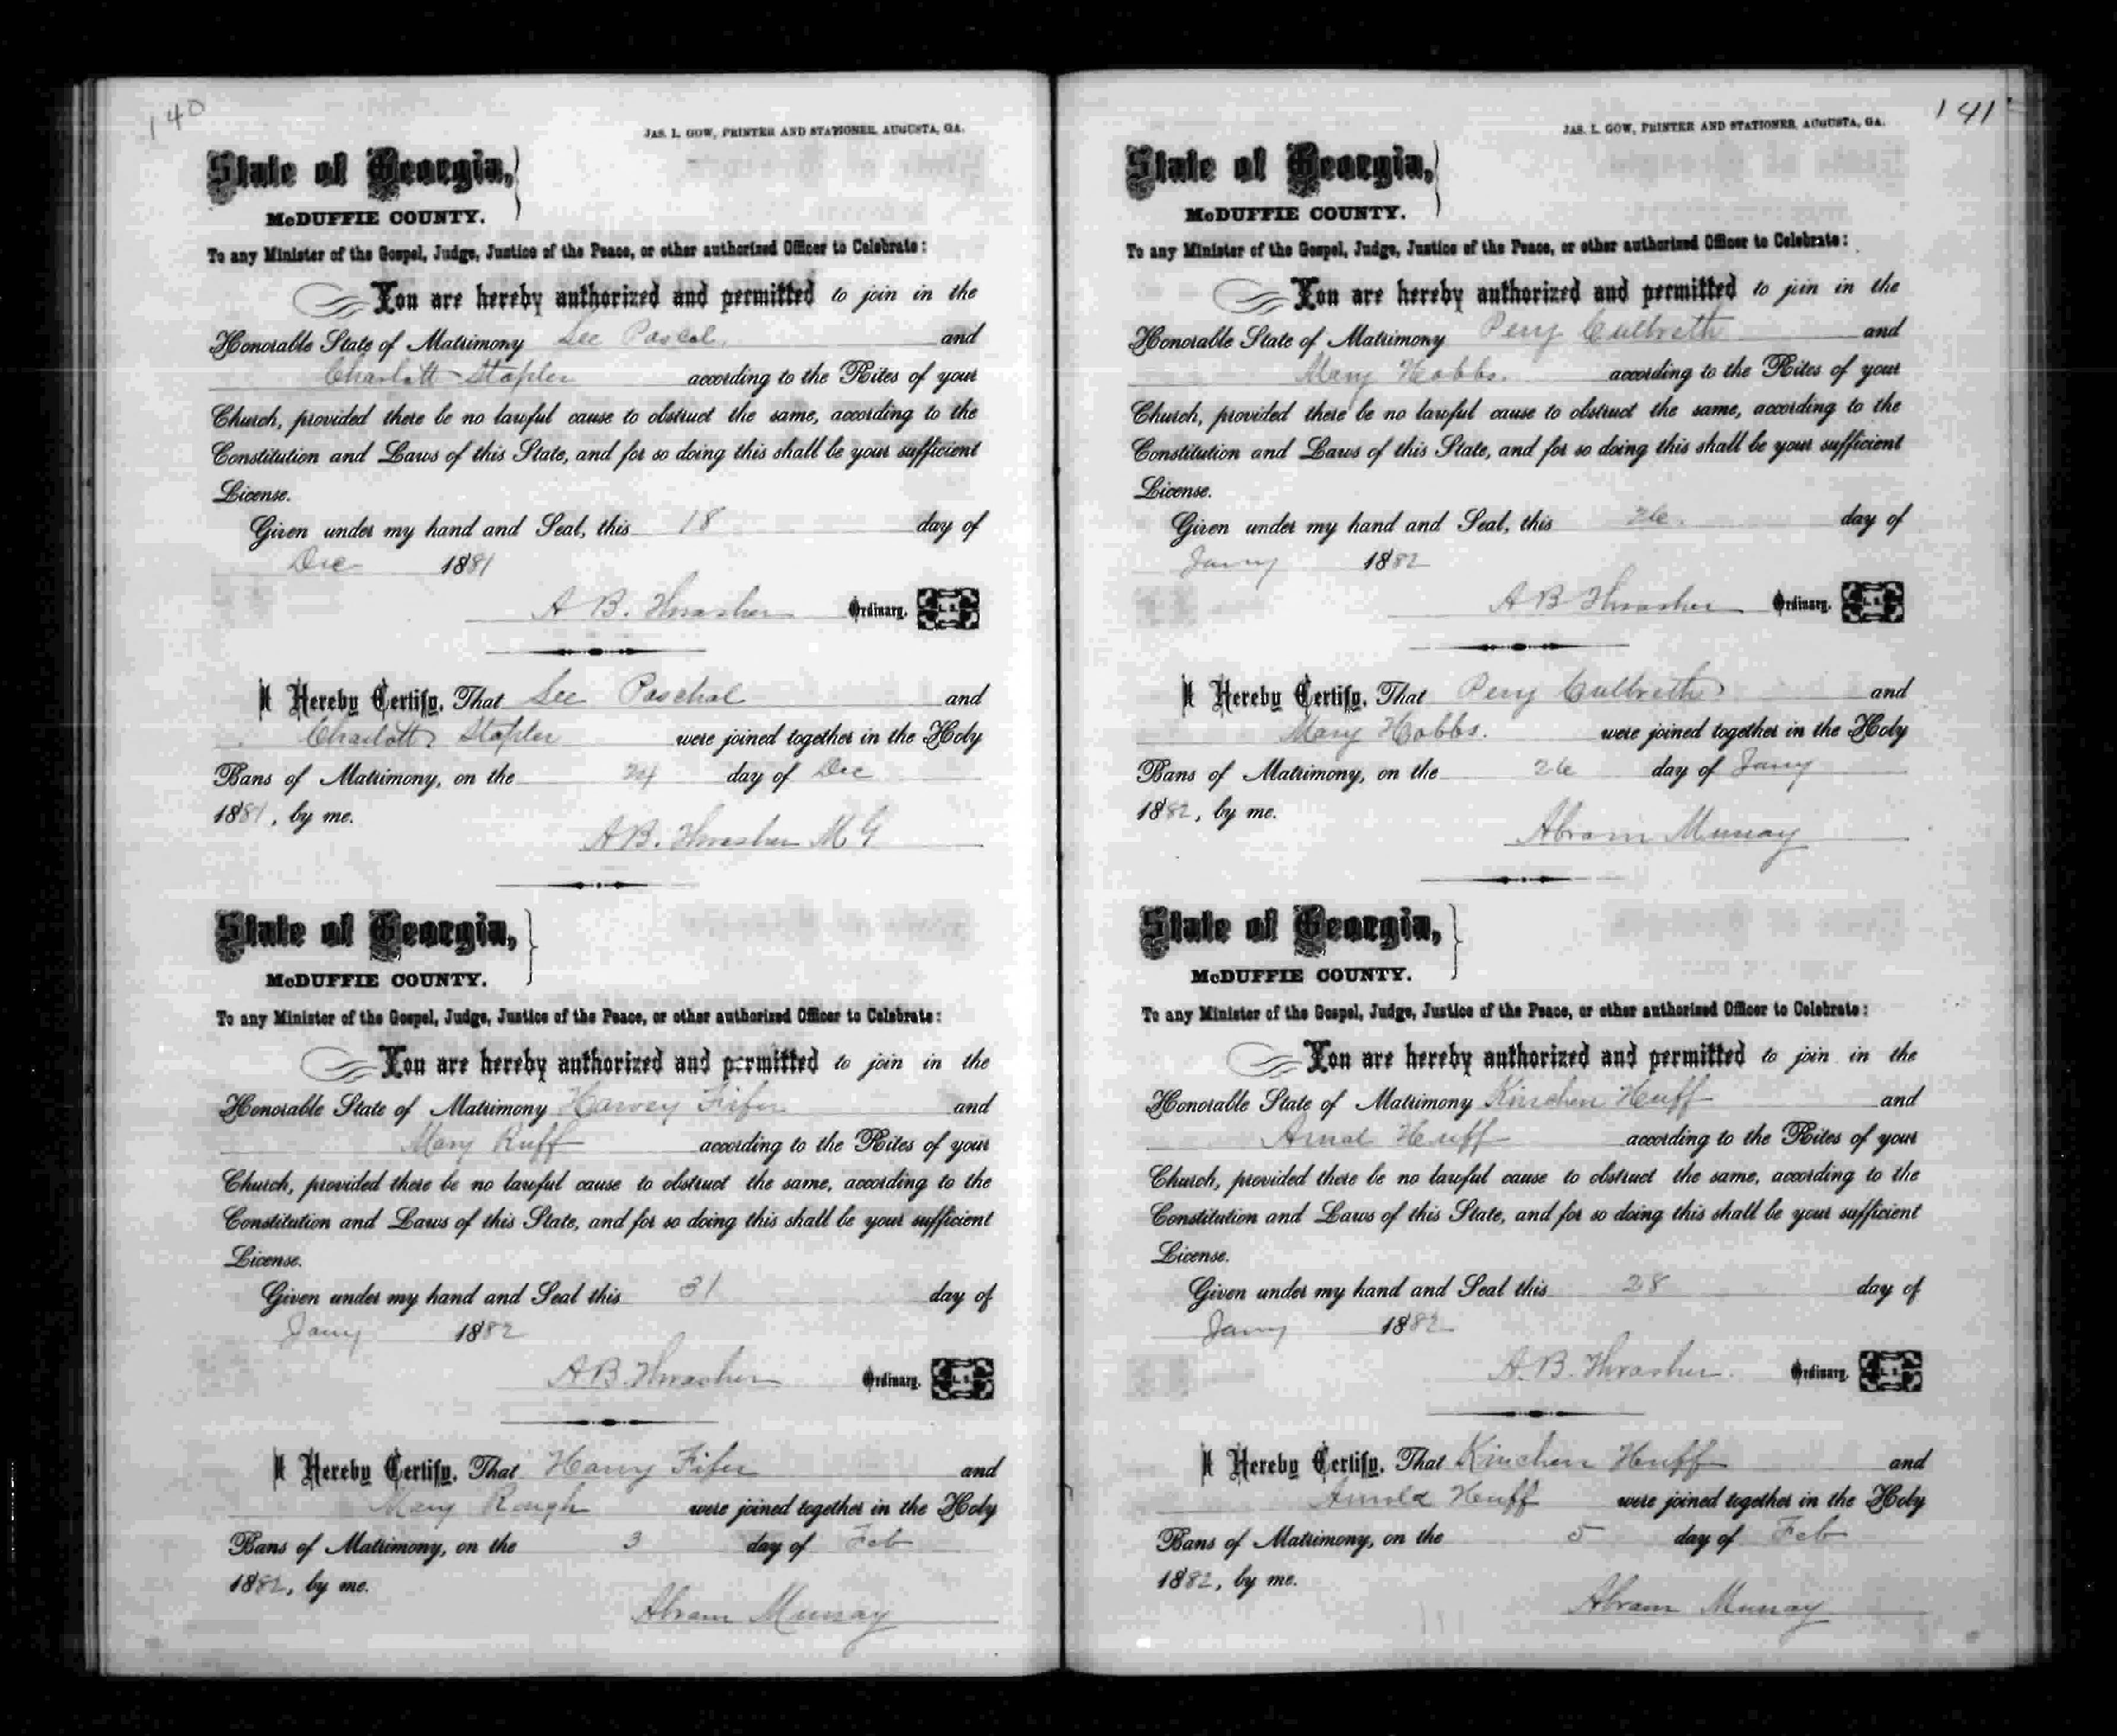 140
JAS. L. GOW, PRINTER AND STATIONER, AUGUSTA, GA.
State of Georgia,
McDUFFIE COUNTY.
To any Minister of the Gospel, Judge, Justice of the Peace, or other authorized Officer to Celebrate:
You are hereby authorized and permitted to join in the
Honorable State of Matrimony Lee Pascal. and
Charlott Stapler according to the Rites of your
Church, provided there be no lawful cause to obstruct the same, according to the
Constitution and Laws of this State, and for so doing this shall be your sufficient
License.
Given under my hand and Seal, this 18 day of
Dec 1881
A B. Thrasher Ordinary. L. S.
I Hereby Certify, That Lee Paschal and
Charlott Stapler were joined together in the Holy
Bans of Matrimony, on the 24 day of Dec
1881, by me.
A B. Thrasher M G
State of Georgia,
McDUFFIE COUNTY.
To any Minister of the Gospel, Judge, Justice of the Peace, or other authorized Officer to Celebrate:
You are hereby authorized and permitted to join in the
Honorable State of Matrimony Harvey Fifer and
Mary Ruff according to the Rites of your
Church, provided there be no lawful cause to obstruct the same, according to the
Constitution and Laws of this State, and for so doing this shall be your sufficient
License.
Given under my hand and Seal this 31 day of
Jany 1882
A B Thrasher Ordinary. L. S.
I Hereby Certify, That Harvy Fifer and
Mary Rough were joined together in the Holy
Bans of Matrimony, on the 3 day of Feb
1882, by me.
Abram Murray
141
JAS. L. GOW, PRINTER AND STATIONER, AUGUSTA, GA.
State of Georgia,
McDUFFIE COUNTY.
To any Minister of the Gospel, Judge, Justice of the Peace, or other authorized Officer to Celebrate:
You are hereby authorized and permitted to join in the
Honorable State of Matrimony Perry Culbreth and
Mary Hobbs. according to the Rites of your
Church, provided there be no lawful cause to obstruct the same, according to the
Constitution and Laws of this State, and for so doing this shall be your sufficient
License.
Given under my hand and Seal, this 26. day of
Jany 1882
A B Thrasher Ordinary. L. S.
I Hereby Certify, That Perry Culbreth and
Mary Hobbs. were joined together in the Holy
Bans of Matrimony, on the 26 day of Jany
1882, by me.
Abram Murray
State of Georgia,
McDUFFIE COUNTY.
To any Minister of the Gospel, Judge, Justice of the Peace, or other authorized Officer to Celebrate:
You are hereby authorized and permitted to join in the
Honorable State of Matrimony Kinchen Huff and
Arnal Huff according to the Rites of your
Church, provided there be no lawful cause to obstruct the same, according to the
Constitution and Laws of this State, and for so doing this shall be your sufficient
License.
Given under my hand and Seal this 28 day of
Jany 1882
A. B. Thrasher. Ordinary. L. S.
I Hereby Certify, That Kinchen Huff and
Arnold Huff were joined together in the Holy
Bans of Matrimony, on the 5 day of Feb
1882, by me.
Abram Murray